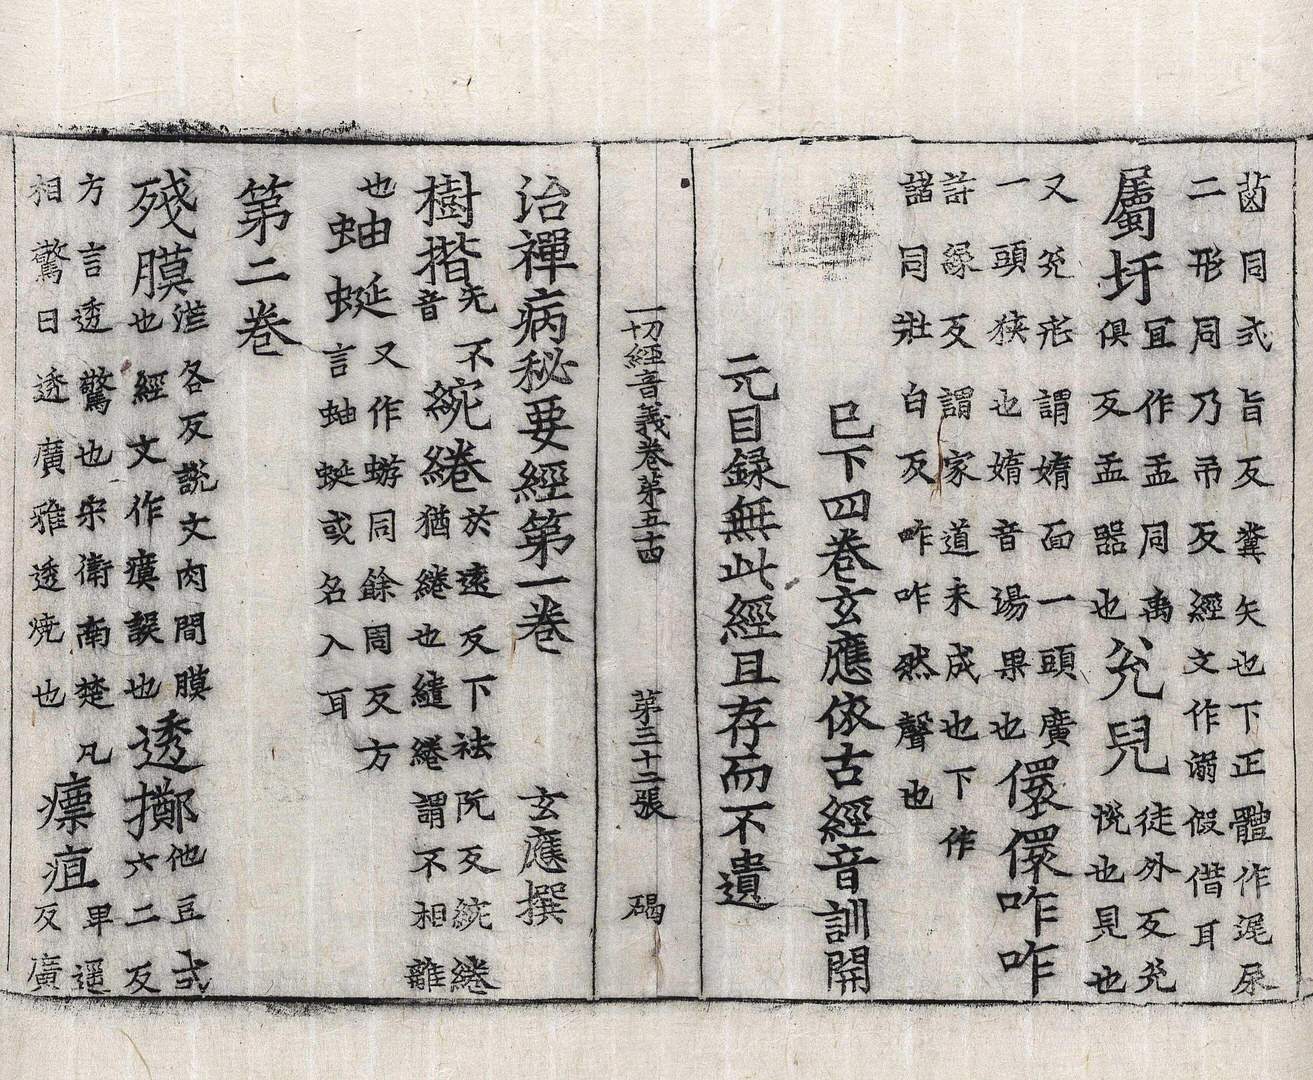 𦳊同式旨反糞矢也下正體作𡲆尿
二形同乃吊反經文作溺假借耳
屬盂
宜作盂同禹
俱反盂器也
兊兒
徒外反兊
悅也見也
又兊㐫謂嫷面一頭廣
一頭狹也嫷音湯果也
儇儇咋咋
許緣反謂家道未成也下作
諎同壯白反咋咋然聲也
已下四卷玄應依古經音訓開
元目録無此經且存而不遺
一切經音義卷第五十四 第三十二張 碣
治禪病秘要經第一卷 玄應撰
樹揩
先不
音
綩綣
於遠反下袪阮反綩綣
猶綣也繾綣謂不相離
也
蚰蜒
又作蝣同餘周反方
言蚰蜒或名入耳
第二卷
殘膜
茫各反説文肉間膜
也經文作瘼誤也
透擲
他豆式
六二反
方言透驚也宋衛南楚凡
相驚曰透廣雅透嬈也
瘭疽
卑遥
反廣